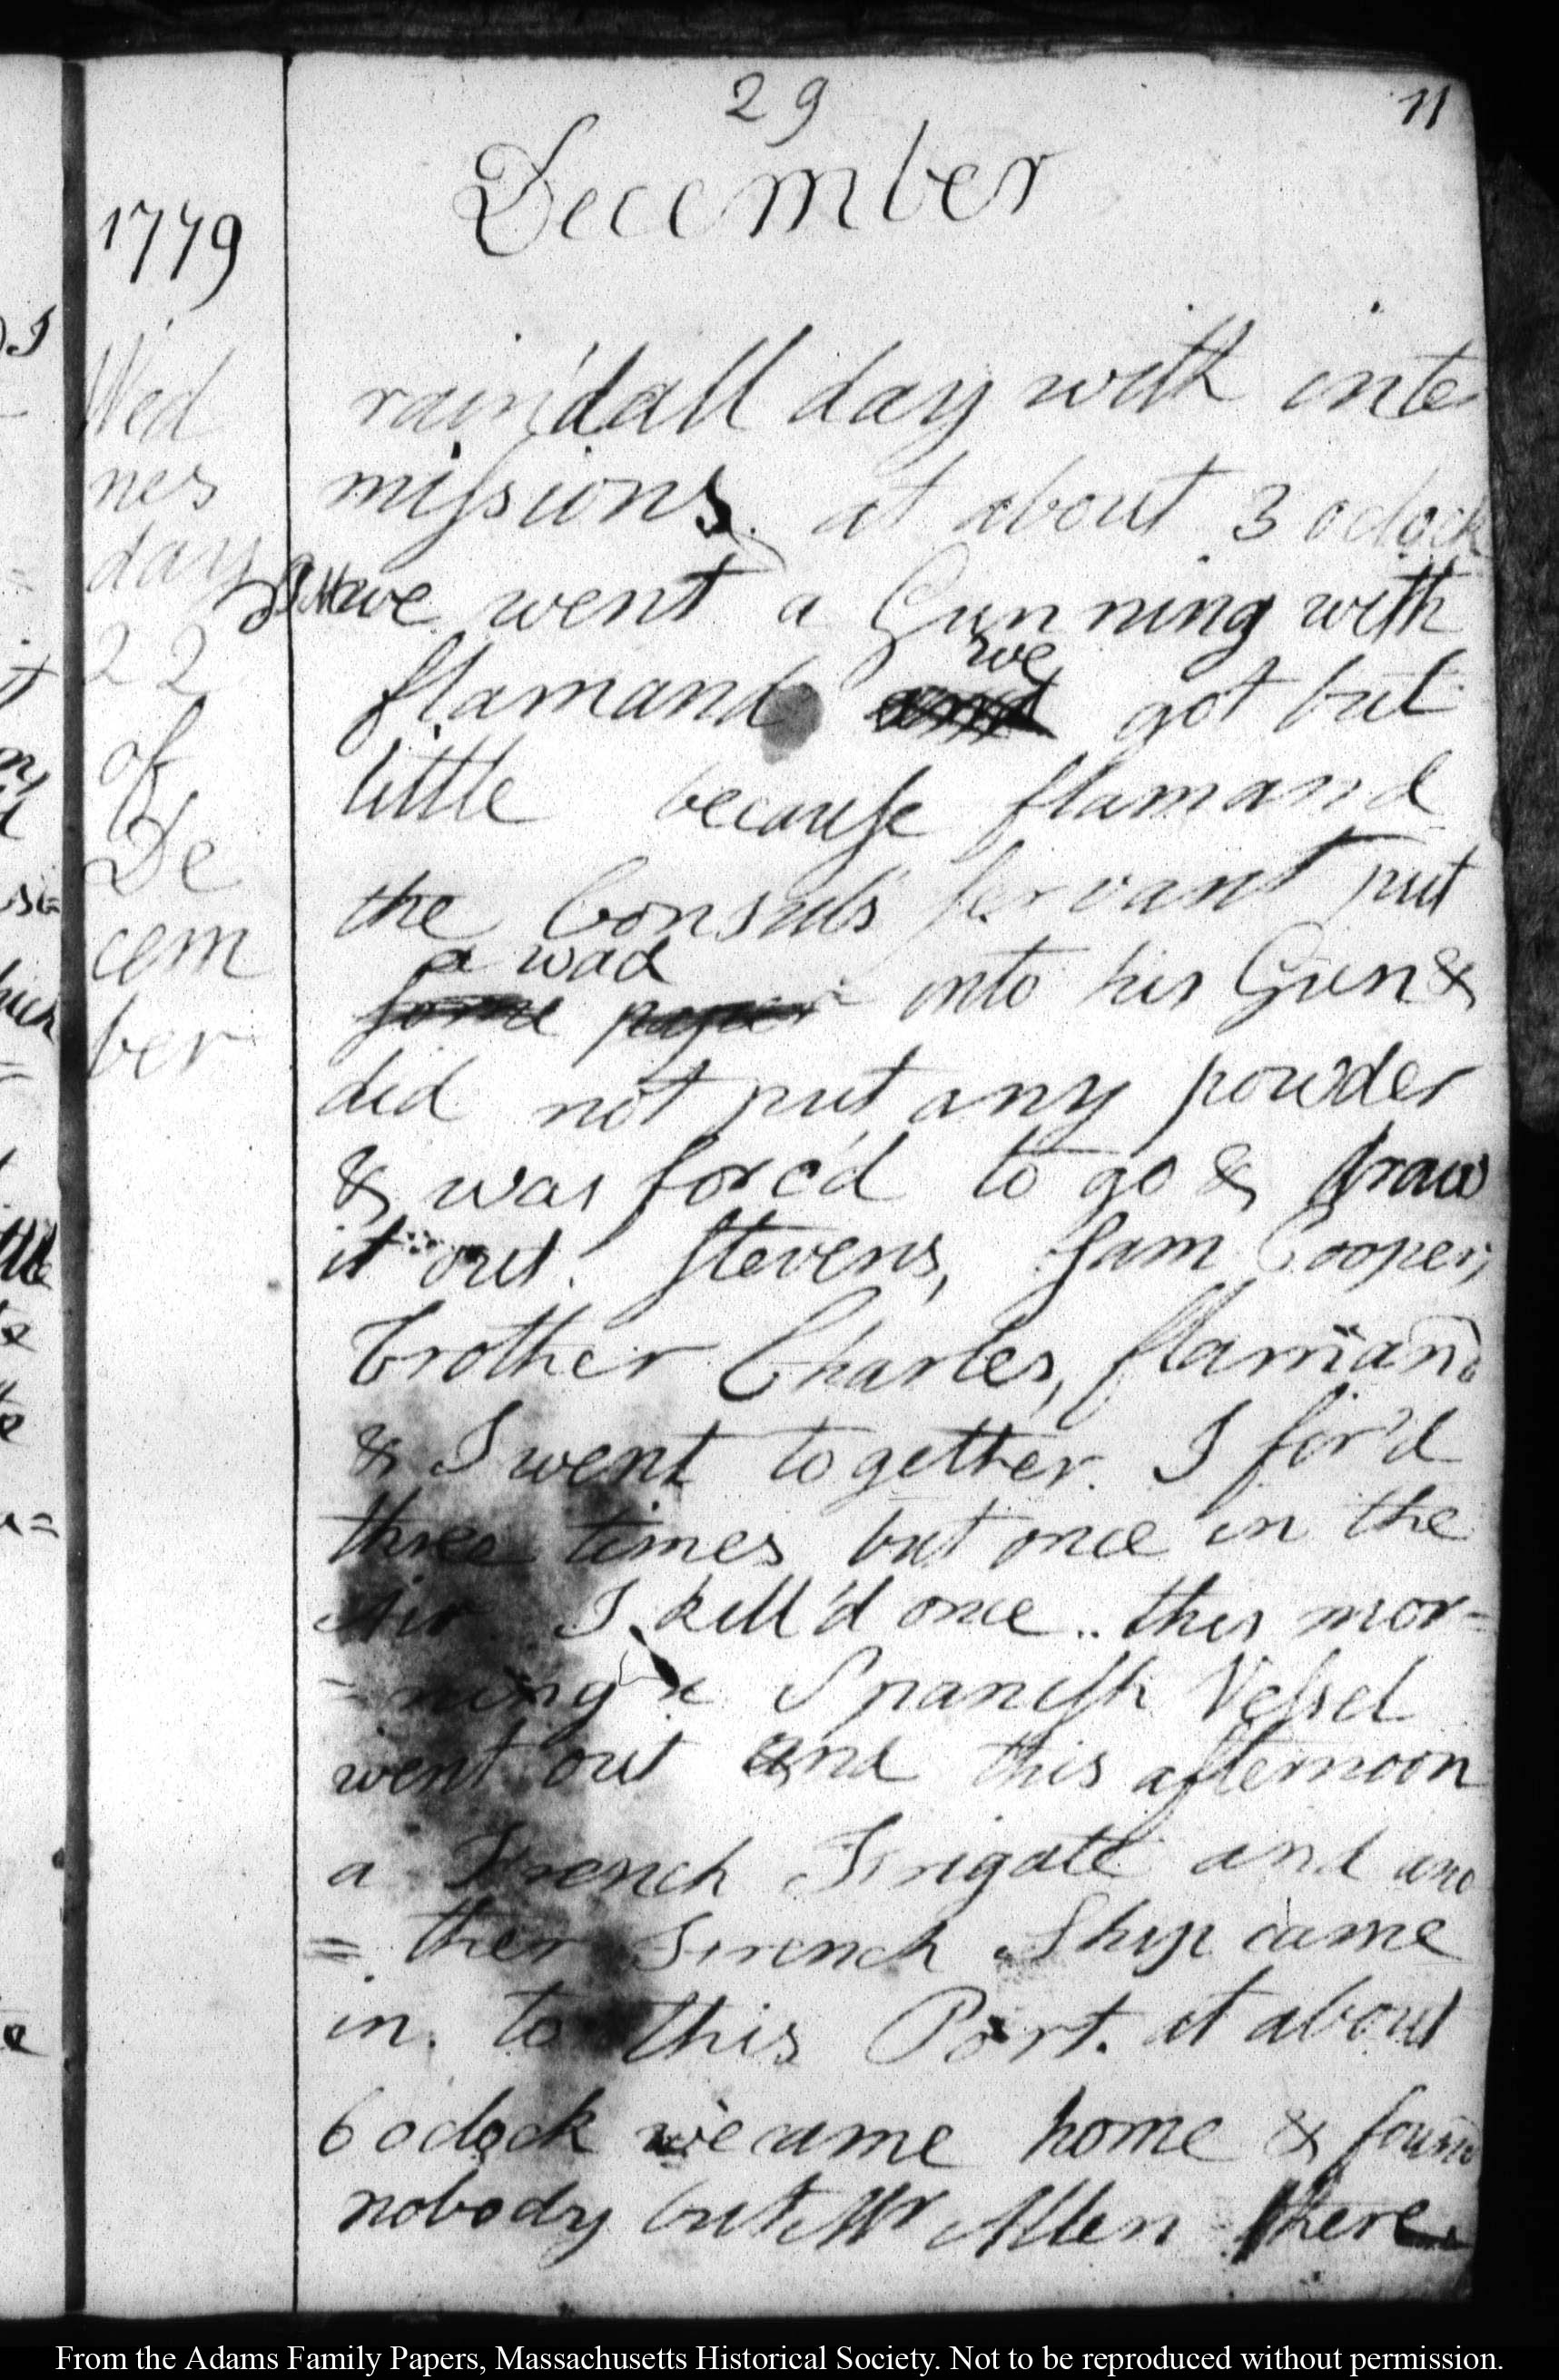 29
11
December
1779
Wed
nes
day
22
of
De
cem
ber
rain'd all day with inte
missions. at about 3 oclock
we went a Gunning with
flamand we got but
little because flamand
the Consuls servant put
a wad
some paper into his Gun &
did not put any powder
& was forc'd to go & draw
it out. Stevens, Sam Cooper,
Brother Charles, flamand
& I went together. I fir'd
three times but once in the
Air I kill'd once.. this mor=
=ning a Spanish Vessel
went out and this afternoon
a French Frigate and ano
=ther French Ship came
in. to this Port. at about
6 oclock we came home & found
nobody but Mr Allen there.
From the Adams Family Papers, Massachusetts Historical Society. Not to be reproduced without permission.